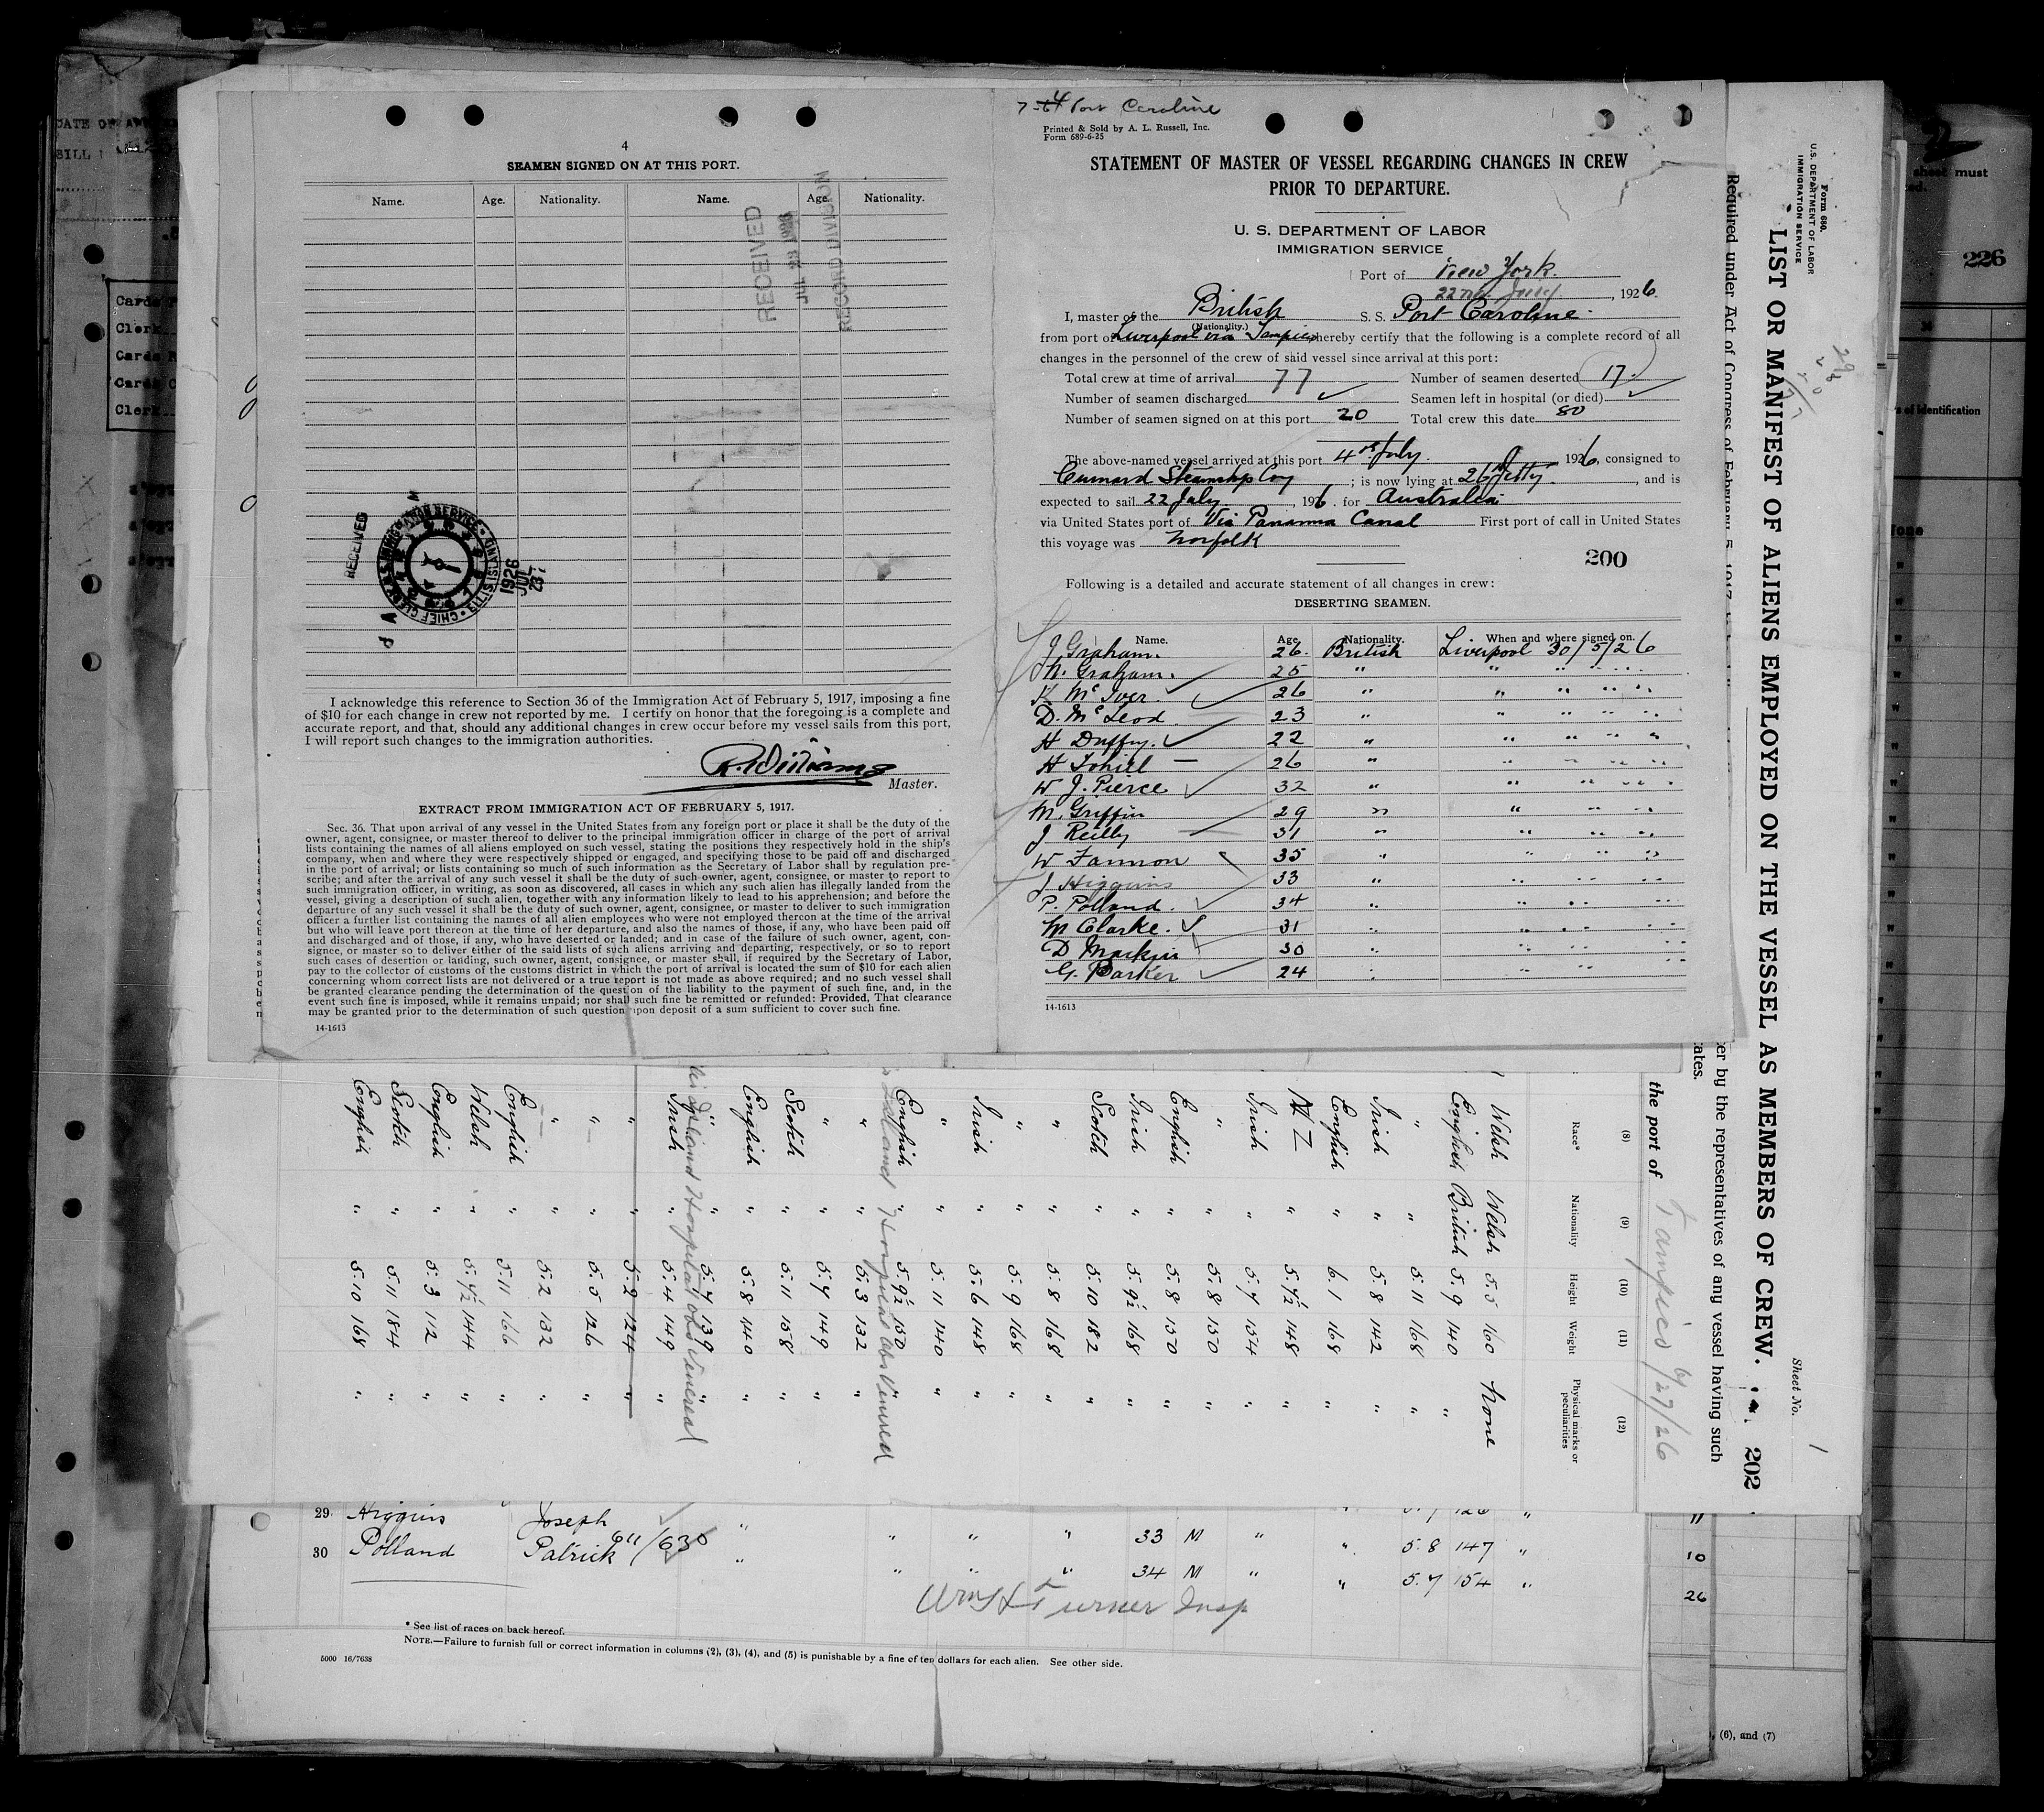 4
SEAMEN SIGNED ON AT THIS PORT.
Name. Age. Nationality. Name. Age. Nationality.
RECEIVED
JUL 23 1926
RECORD DIVISION
RECEIVED
CHIEF CLERK U.S. IMMIGRATION SERVICE · ELLIS ISLAND
1926
JUL
23
I acknowledge this reference to Section 36 of the Immigration Act of February 5, 1917, imposing a fine
of $10 for each change in crew not reported by me. I certify on honor that the foregoing is a complete and
accurate report, and that, should any additional changes in crew occur before my vessel sails from this port,
I will report such changes to the immigration authorities.
R. Williams
Master.
EXTRACT FROM IMMIGRATION ACT OF FEBRUARY 5, 1917.
Sec. 36. That upon arrival of any vessel in the United States from any foreign port or place it shall be the duty of the
owner, agent, consignee, or master thereof to deliver to the principal immigration officer in charge of the port of arrival
lists containing the names of all aliens employed on such vessel, stating the positions they respectively hold in the ship's
company, when and where they were respectively shipped or engaged, and specifying those to be paid off and discharged
in the port of arrival; or lists containing so much of such information as the Secretary of Labor shall by regulation pre-
scribe; and after the arrival of any such vessel it shall be the duty of such owner, agent, consignee, or master to report to
such immigration officer, in writing, as soon as discovered, all cases in which any such alien has illegally landed from the
vessel, giving a description of such alien, together with any information likely to lead to his apprehension; and before the
departure of any such vessel it shall be the duty of such owner, agent, consignee, or master to deliver to such immigration
officer a further list containing the names of all alien employees who were not employed thereon at the time of the arrival
but who will leave port thereon at the time of her departure, and also the names of those, if any, who have been paid off
and discharged and of those, if any, who have deserted or landed; and in case of the failure of such owner, agent, con-
signee, or master so to deliver either of the said lists of such aliens arriving and departing, respectively, or so to report
such cases of desertion or landing, such owner, agent, consignee, or master shall, if required by the Secretary of Labor,
pay to the collector of customs of the customs district in which the port of arrival is located the sum of $10 for each alien
concerning whom correct lists are not delivered or a true report is not made as above required; and no such vessel shall
be granted clearance pending the determination of the question of the liability to the payment of such fine, and, in the
event such fine is imposed, while it remains unpaid; nor shall such fine be remitted or refunded: Provided, That clearance
may be granted prior to the determination of such question upon deposit of a sum sufficient to cover such fine.
14-1613
Port Caroline
Printed & Sold by A. L. Russell, Inc.
Form 689-6-25
STATEMENT OF MASTER OF VESSEL REGARDING CHANGES IN CREW
PRIOR TO DEPARTURE.
U. S. DEPARTMENT OF LABOR
IMMIGRATION SERVICE
Port of New York.
22nd July, 1926.
I, master of the British S. S. Port Caroline.
(Nationality.)
from port of Liverpool via Tampico hereby certify that the following is a complete record of all
changes in the personnel of the crew of said vessel since arrival at this port:
Total crew at time of arrival 77 Number of seamen deserted 17.
Number of seamen discharged Seamen left in hospital (or died)
Number of seamen signed on at this port 20 Total crew this date 80
The above-named vessel arrived at this port 4th July. 1926, consigned to
Cunard Steamship Coy ; is now lying at 26 Jetty. , and is
expected to sail 22 July, 1926. for Australia
via United States port of Via Panama Canal First port of call in United States
this voyage was Norfolk
200
Following is a detailed and accurate statement of all changes in crew:
DESERTING SEAMEN.
Name. Age. Nationality. When and where signed on.
J Graham. 26. British Liverpool 30/5/26
W. Graham. 25 " " " " "
K McIver. 26 " " " " "
D. McLeod 23 " " " " "
H Duffy. 22 " " " " "
H Tohill 26 " " " " "
W J. Pierce 32 " " " " "
M. Griffin 29 " " " "
J Reilly 31 " " " "
W Fannon 35 " " " "
J Higgins 33 " " " "
P. Polland. 34 " " " "
M Clarke. 31 " " " "
D Mackin 30 " " " "
G. Parker 24 " " " "
14-1613
Form 680.
U. S. DEPARTMENT OF LABOR
IMMIGRATION SERVICE
LIST OR MANIFEST OF ALIENS EMPLOYED ON THE VESSEL AS MEMBERS OF CREW. 202
Sheet No. 1
Required under Act of Congress of February 5, 1917,
er by the representatives of any vessel having such
cates.
the port of Tampico 6/27/26
(8) (9) (10) (11) (12)
Race* Nationality Height Weight Physical marks or peculiarities
Welsh Welsh 5.5 160 None
English British 5.9 140 "
" " 5.11 168 "
Irish " 5.8 142 "
English " 6.1 168 "
N Z " 5.7½ 148 "
Irish " 5.7 154 "
" " 5.8 150 "
English " 5.8 150 "
Irish " 5.9½ 168 "
Scotch " 5.10 182 "
" " 5.8 168 "
" " 5.9 168 "
Irish " 5.6 148 "
" " 5.11 140 "
English " 5.9½ 150
Island Hospital obs Venereal
" " 5.3 132 "
" " 5.7 149 "
Scotch " 5.11 158 "
English " 5.8 140 "
" " 5.7 139 "
Island Hospital obs Venereal
Irish " 5.4 149 "
" " 5.2 124 "
" " 5.5 126 "
" " 5.2 132 "
English " 5.11 166 "
Welsh " 5.4½ 144 "
English " 5.3 112 "
Scotch " 5.11 184 "
English " 5.10 168 "
29 Higgins Joseph " " " " 33 M " " 5.8 147 "
30 Polland Patrick " " " " 34 M " " 5.7 154 "
Wm H Turner Insp
* See list of races on back hereof.
NOTE.—Failure to furnish full or correct information in columns (2), (3), (4), and (5) is punishable by a fine of ten dollars for each alien. See other side.
5000 16/7638
11
10
26
sheet must
226
s of identification
, (6), and (7)
Clerk
Clerk